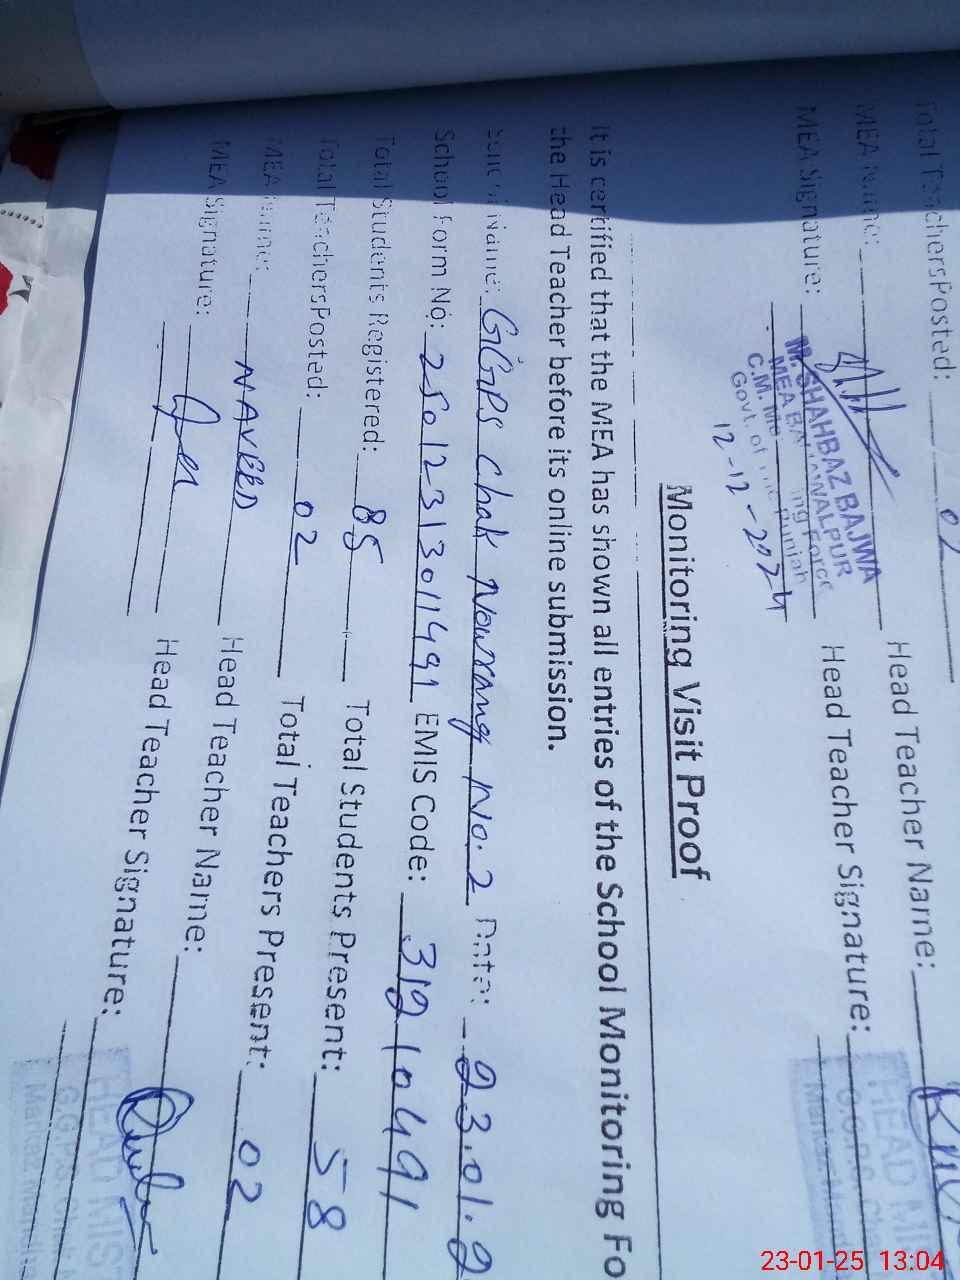 Total Teachers Posted: 02
MEA Name: Head Teacher Name:
MEA Signature: Head Teacher Signature:
M. SHAHBAZ BAJWA
MEA BAHAWALPUR
C.M. Monitoring Force
Govt. of the Punjab
12-12-2024
HEAD MIS
G.G.P.S. Chak
Markaz
Monitoring Visit Proof
It is certified that the MEA has shown all entries of the School Monitoring Fo
the Head Teacher before its online submission.
School Name: GGPS Chak Nowrang No.2 Date: 23.01.2
School Form No: 25012313011491 EMIS Code: 31910491
Total Students Registered: 85 Total Students Present: 58
Total Teachers Posted: 02 Total Teachers Present: 02
MEA Name: NAVEED Head Teacher Name:
MEA Signature: Head Teacher Signature:
HEAD MIS
G.G.P.S. Chak
Markaz
23-01-25 13:04